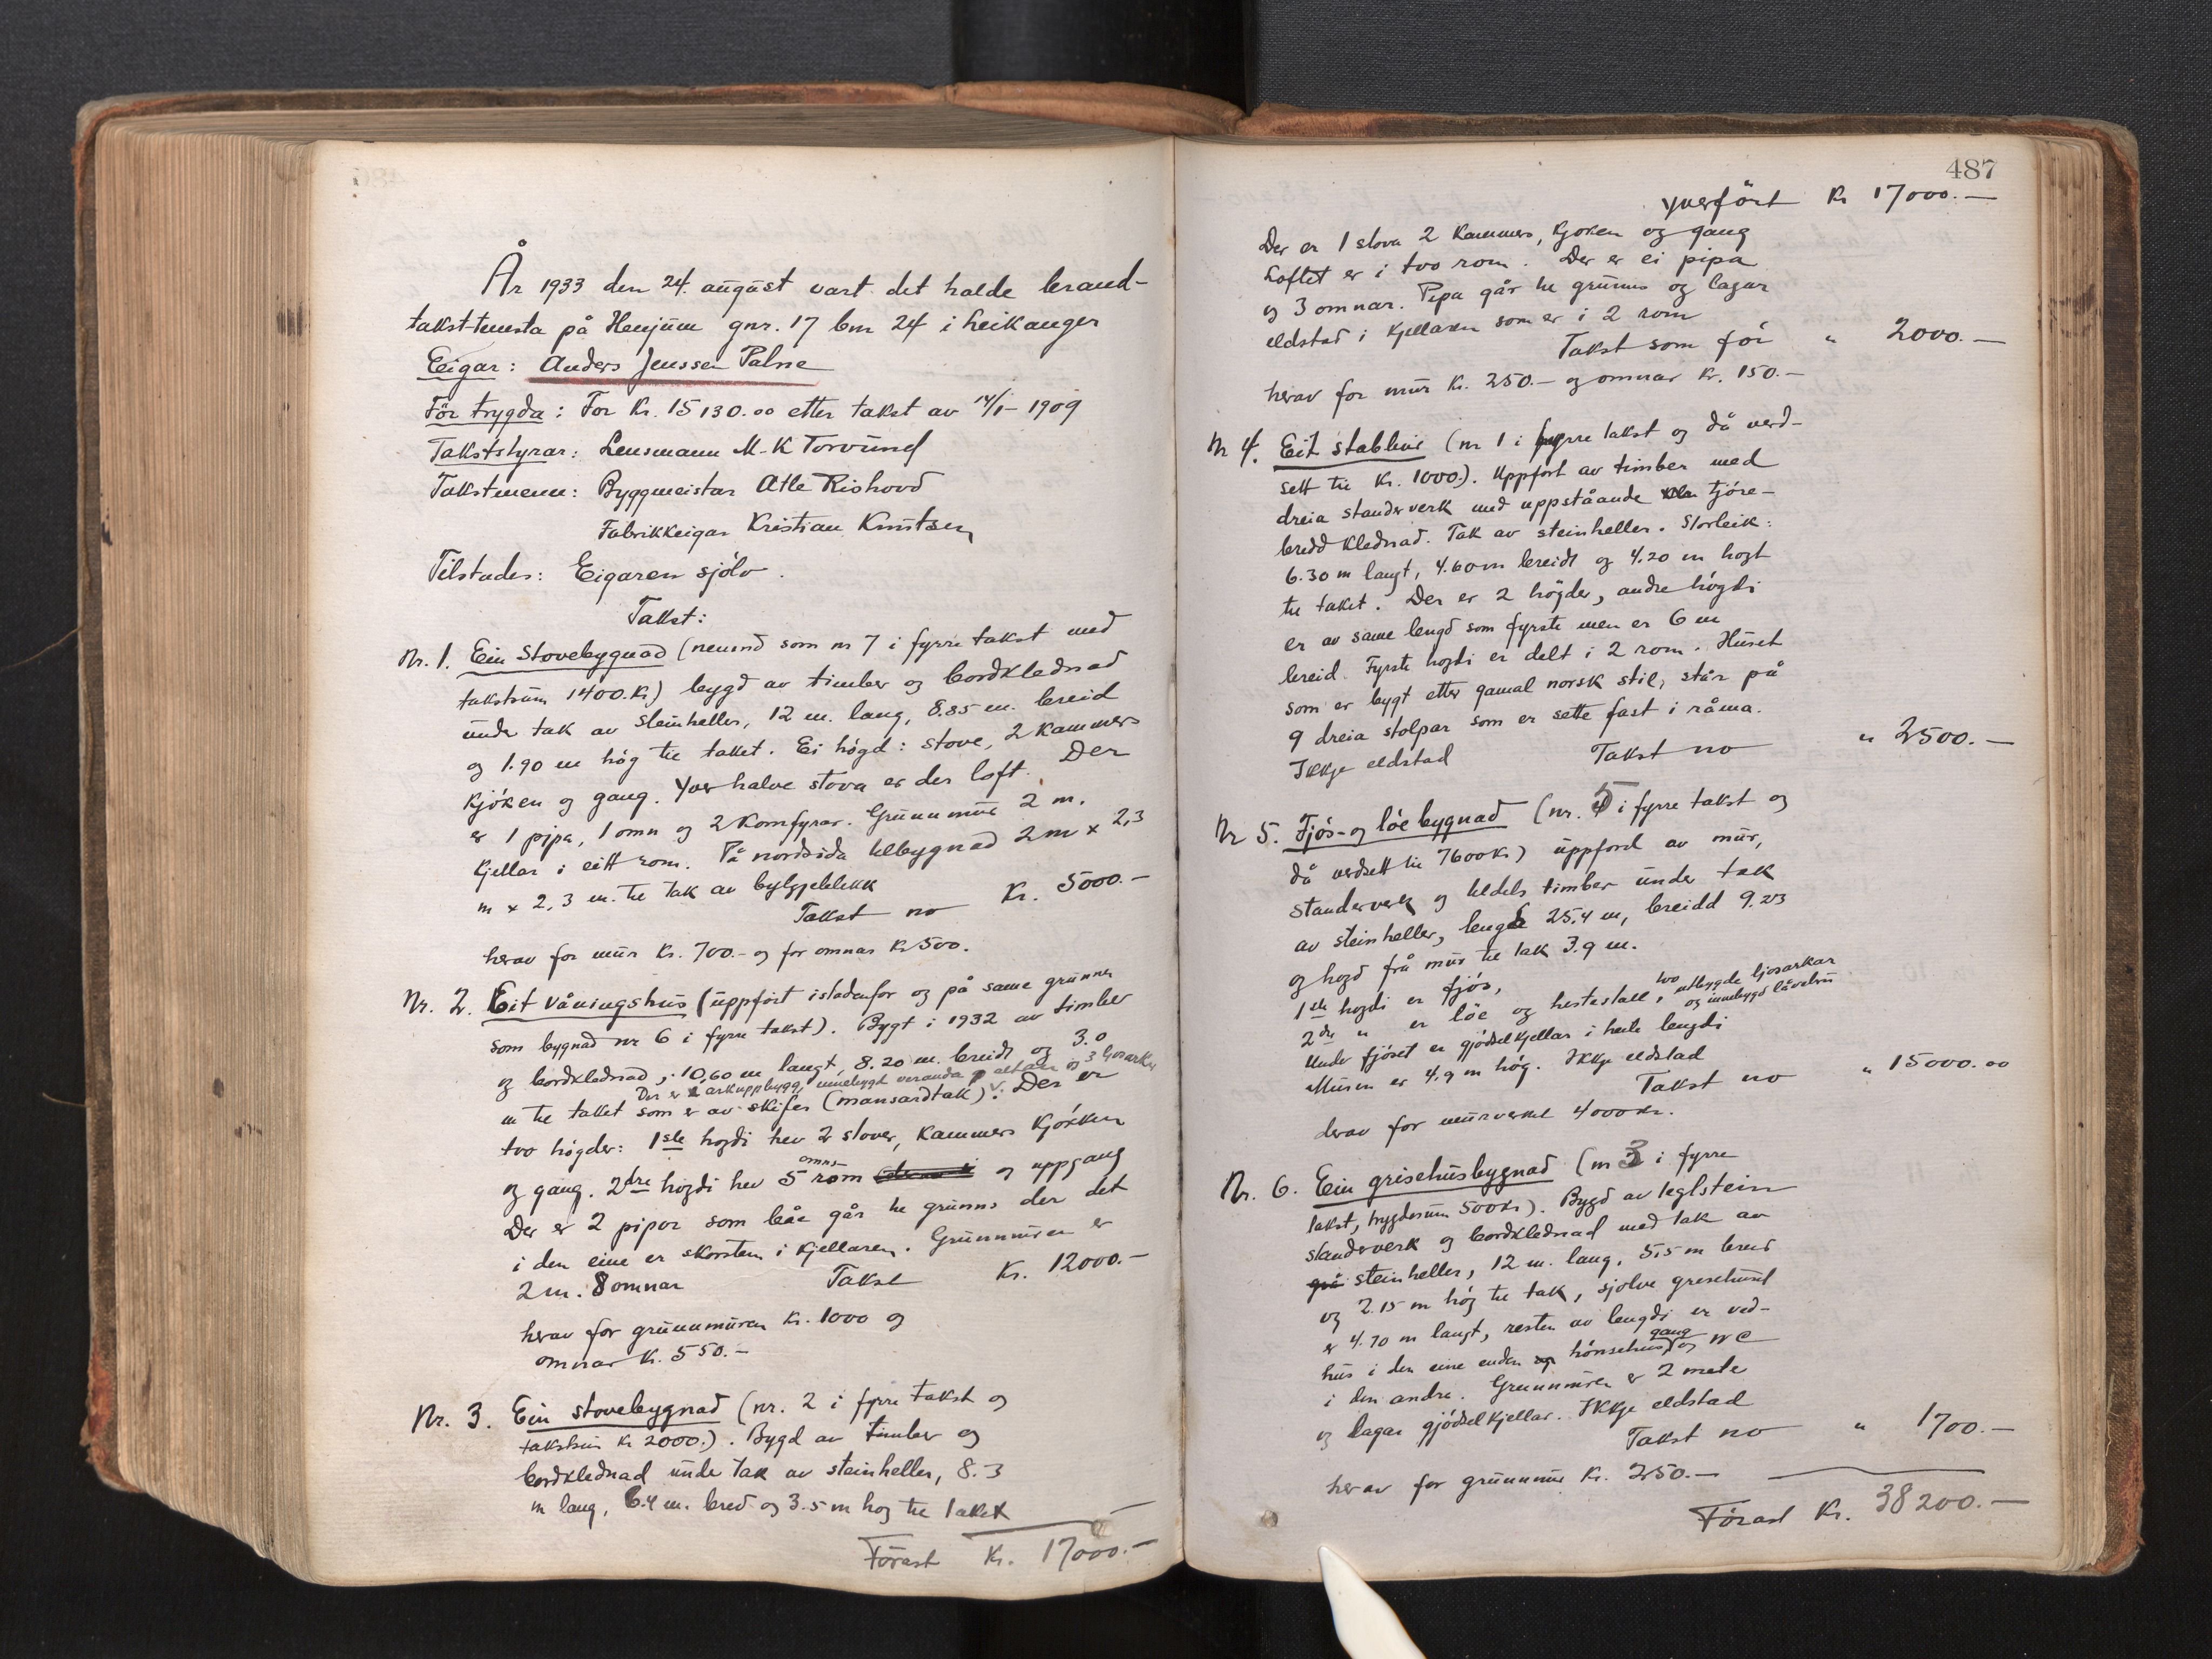 År 1933 den 24. august vart det halde brand-
takst-tenesta på Henjum gnr. 17 bnr 24 i Leikanger
Eigar: Anders Jenssen Palne
Før trygda: For Kr. 15130.00 etter takst av 14/1-1909
Takststyrar: Lensmann M-K Torvund
Takstmenn: Byggmeistar Atle Rishovd
Fabrikkeigar Kristian Knutsen
Tilstades: Eigaren sjølv.
Takst:
Nr. 1. Ein Stovebygnad (nemnd som nr 7 i fyrre takst med
takstsum 1400.Kr) bygd av timber og bordklednad
under tak av steinheller, 12 m. lang, 8.85 m. breid
og 1.90 m høg til taket. Ei høgd: stove, 2 kammers
kjøken og gang. Yver halve stova er der loft. Der
er 1 pipa, 1 omn og 2 komfyrar. Grunnmur 2 m.
Kjellar i eitt rom. På nordsida tilbygnad 2m x 2,3
m x 2,3 m. til tak av bylgjeblikk
Takst no Kr. 5000.-
herav for mur Kr. 700.- og for omnar Kr 500.
Nr. 2. Eit våningshus (uppført istadenfor og på same grunn
som bygnad nr 6 i fyrre takst). Bygt i 1932 av timber
og bordklednad, 10,60 m langt, 8.20 m. breidt og 3.0
Der er arkuppbygg, innebygd veranda altan og 3 ljosarkar
m til taket som er av skifer (mansardtak). Der er
tvo høgder: 1ste høgdi hev 2 stover, kammers kjøkken
og gang. 2dre høgdi hev 5 omns-rom og uppgang
Der er 2 pipor som båe går til grunns der det
i den eine er skorsten i kjellaren. Grunnmuren er
2 m. 8 omnar Takst Kr. 12000.-
herav for grunnmuren Kr. 1000 og
omnar Kr. 550.-
Nr. 3. Ein stovebygnad (nr. 2 i fyrre takst og
takstsum Kr 2000.). Bygd av timber og
bordklednad under tak av steinheller, 8.3
m lang, 6.4 m. breid og 3.5 m høg til taket
Førast Kr. 17000.-
487
Yverført Kr 17000.-
Der er 1 stova 2 kammers, kjøken og gang
Loftet er i tvo rom. Der er ei pipa
og 3 omnar. Pipa går til grunns og lagar
eldstad i kjellaren som er i 2 rom
Takst som før " 2000.-
herav for mur Kr. 250.- og omnar Kr. 150.-
Nr 4. Eit stabbur (nr 1 i fyrre takst og då verd-
sett til Kr. 1000.). Uppført av timber med
dreia standerverk med uppståande tjøre-
bredd klednad. Tak av steinheller. Storleik:
6.30 m langt, 4.60 m breidt og 4.20 m høgt
til taket. Der er 2 høgder, andre høgdi
er av same lengd som fyrste men er 6 m
breid. Fyrste høgdi er delt i 2 rom. Huset
som er bygt etter gamal norsk stil, står på
9 dreia stolpar som er sette fast i råma.
Ikkje eldstad Takst no " 2500.-
Nr 5. Fjøs- og løebygnad (nr. 5 i fyrre takst og
då verdsett til 7600Kr) uppførd av mur,
standerverk og tildels timber under tak
av steinheller, lengd 25.4 m, breidd 9.23
og høgd frå mur til tak 3.9 m.
1ste høgdi er fjøs,
2dre " er løe og hestestall, tvo utbygde ljosarkar
og innebygd låvebru
Under fjøset er gjødselkjellar i heile lengdi
Muren er 4.9 m høg. Ikkje eldstad
Takst no " 15000.00
derav for murverket 4000Kr.
Nr. 6. Ein grisehusbygnad (nr 3 i fyrre
takst, trygdesum 500Kr). Bygd av teglstein
standerverk og bordklednad med tak av
steinheller, 12 m. lang, 5,5 m breid
og 2.15 m høg til tak, sjølve grisehuset
er 4.70 m langt, resten av lengdi er ved-
hus i den eine enden hønsehus, gang og WC
i den andre. Grunnmuren er 2 meter
og lagar gjødselkjellar. Ikkje eldstad
Takst no " 1700.-
herav for grunnmur Kr. 250.-
Førast Kr. 38200.-